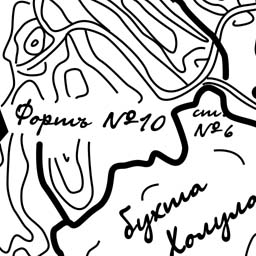 Фортъ №10
ст.
№6
бухта
Холуло